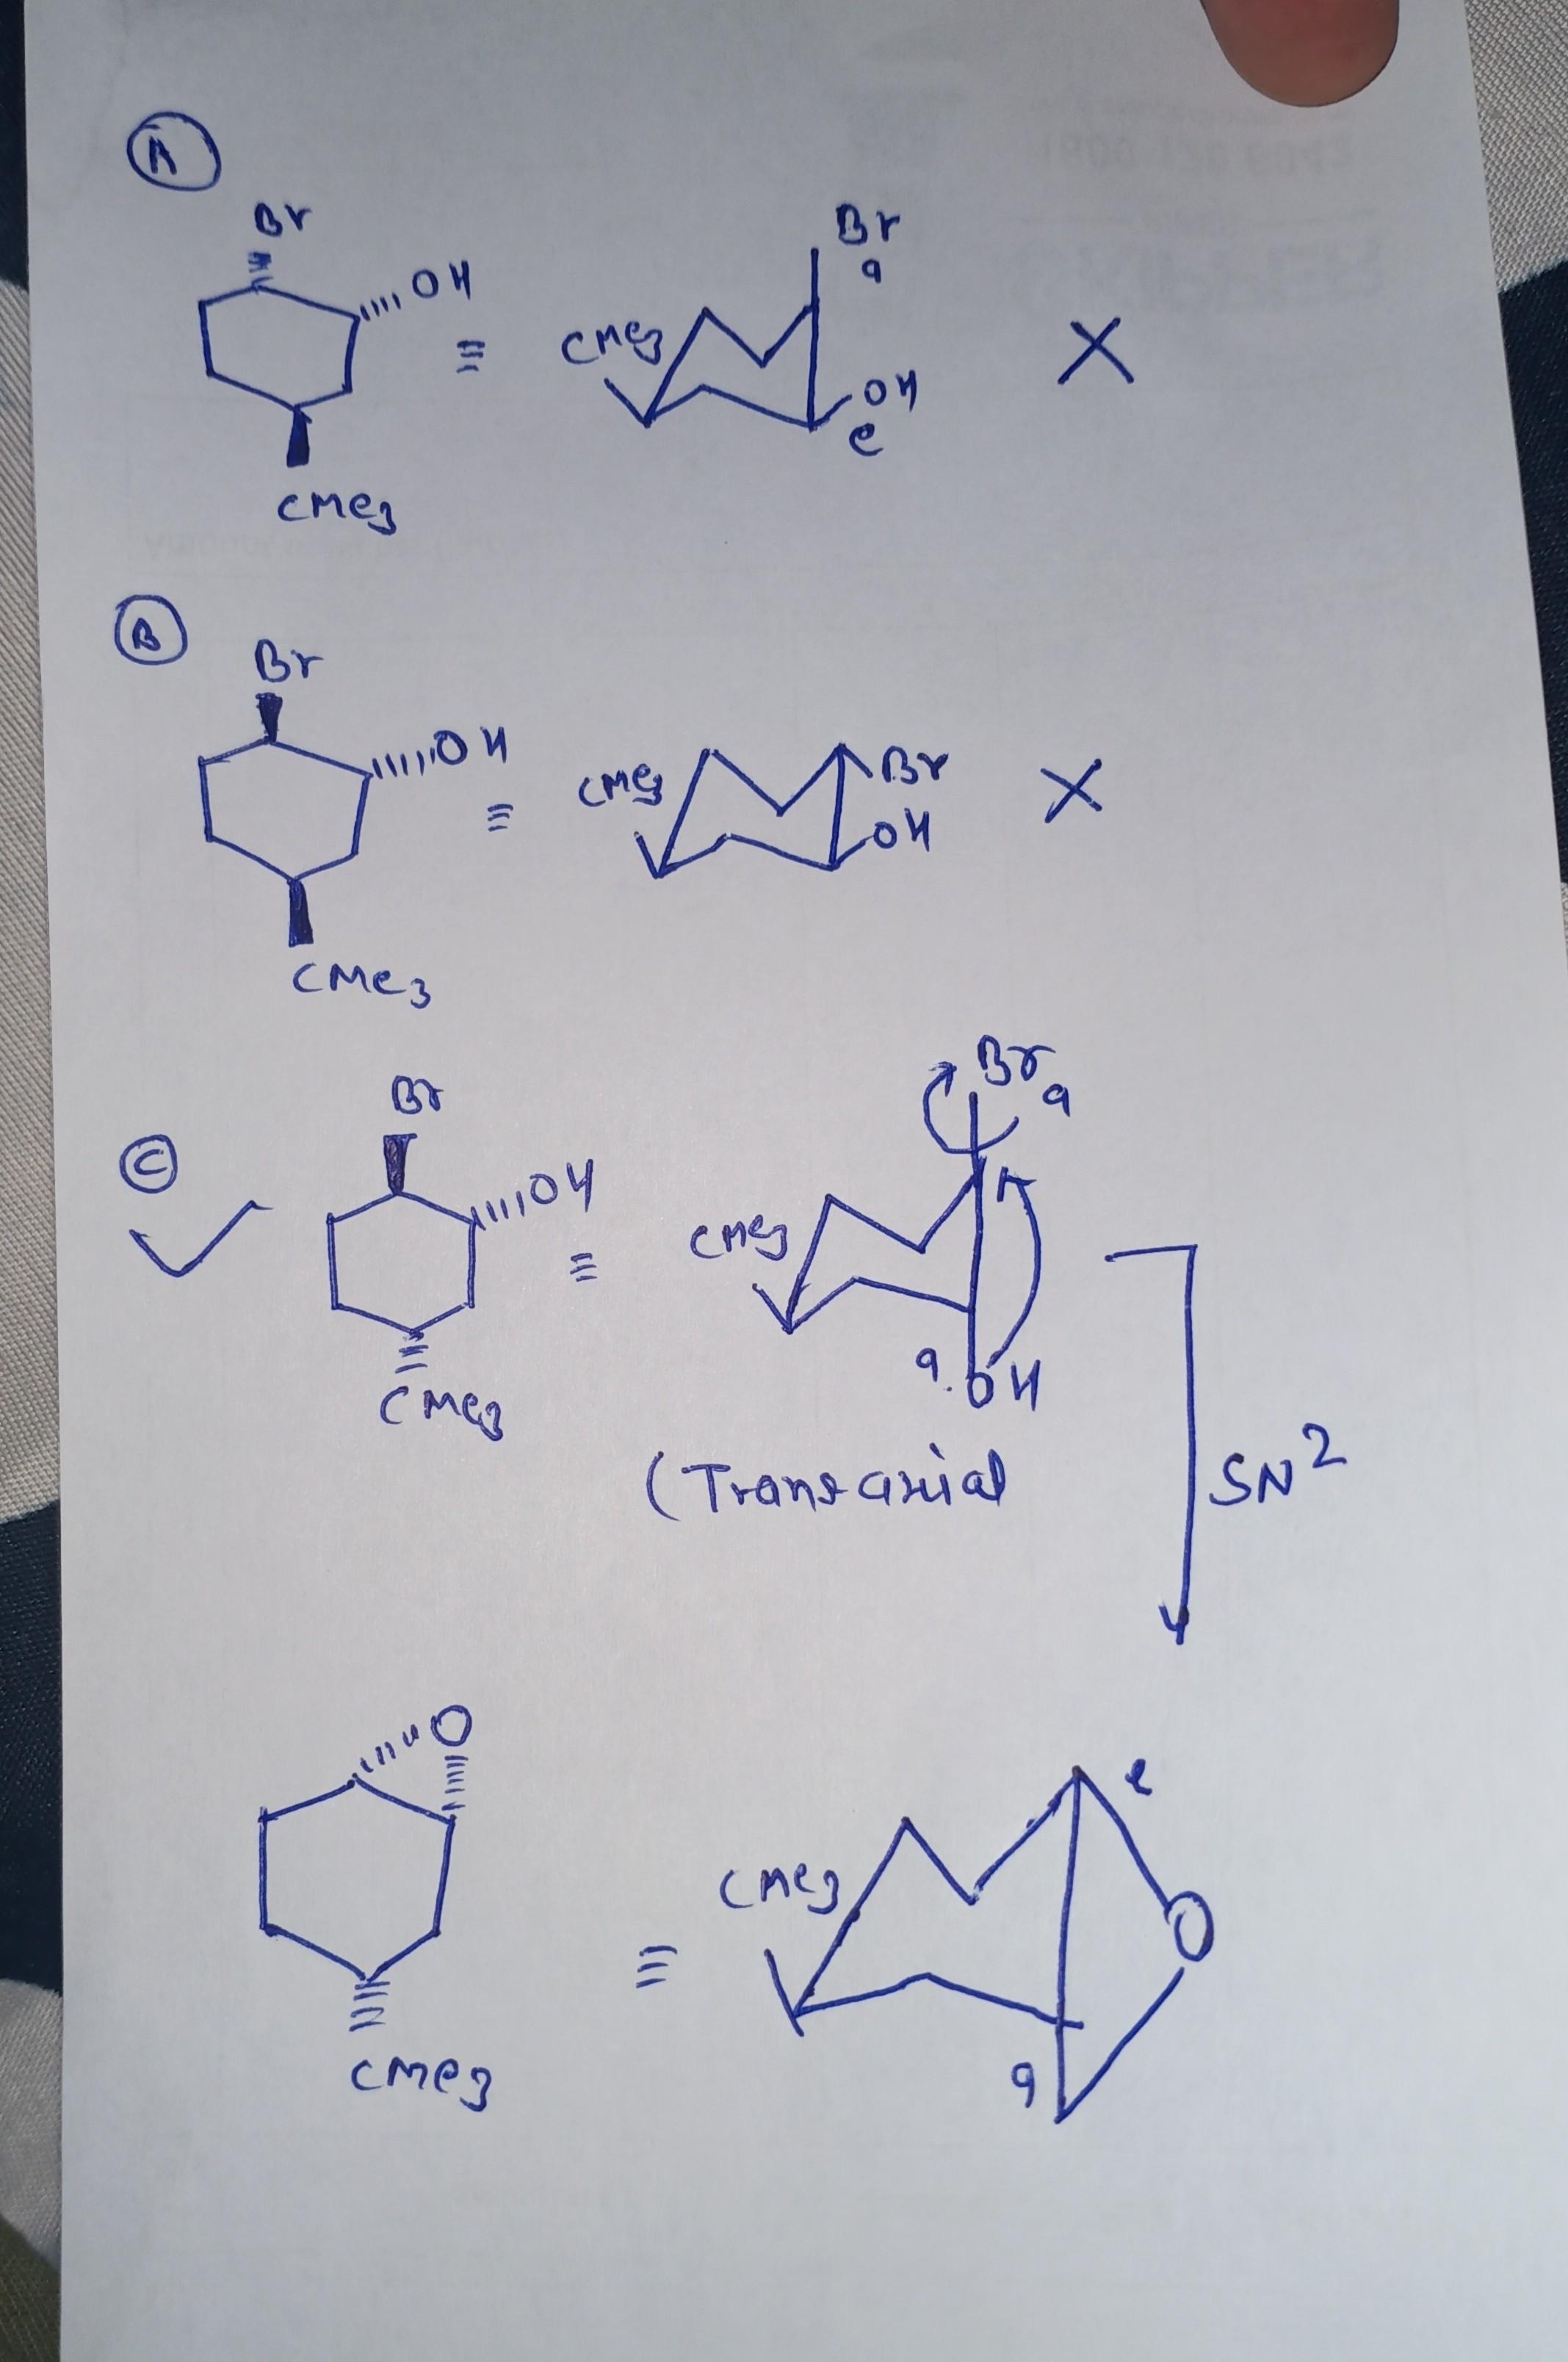 A
Br
OH
≡
CMe3
Br
a
CMe3
OH
e
X
B
Br
OH
≡
CMe3
CMe3
Br
OH
X
C
✓
Br
OH
≡
CMe3
Br a
CMe3
a
OH
(Trans axial
SN2
O
CMe3
≡
e
CMe3
O
a